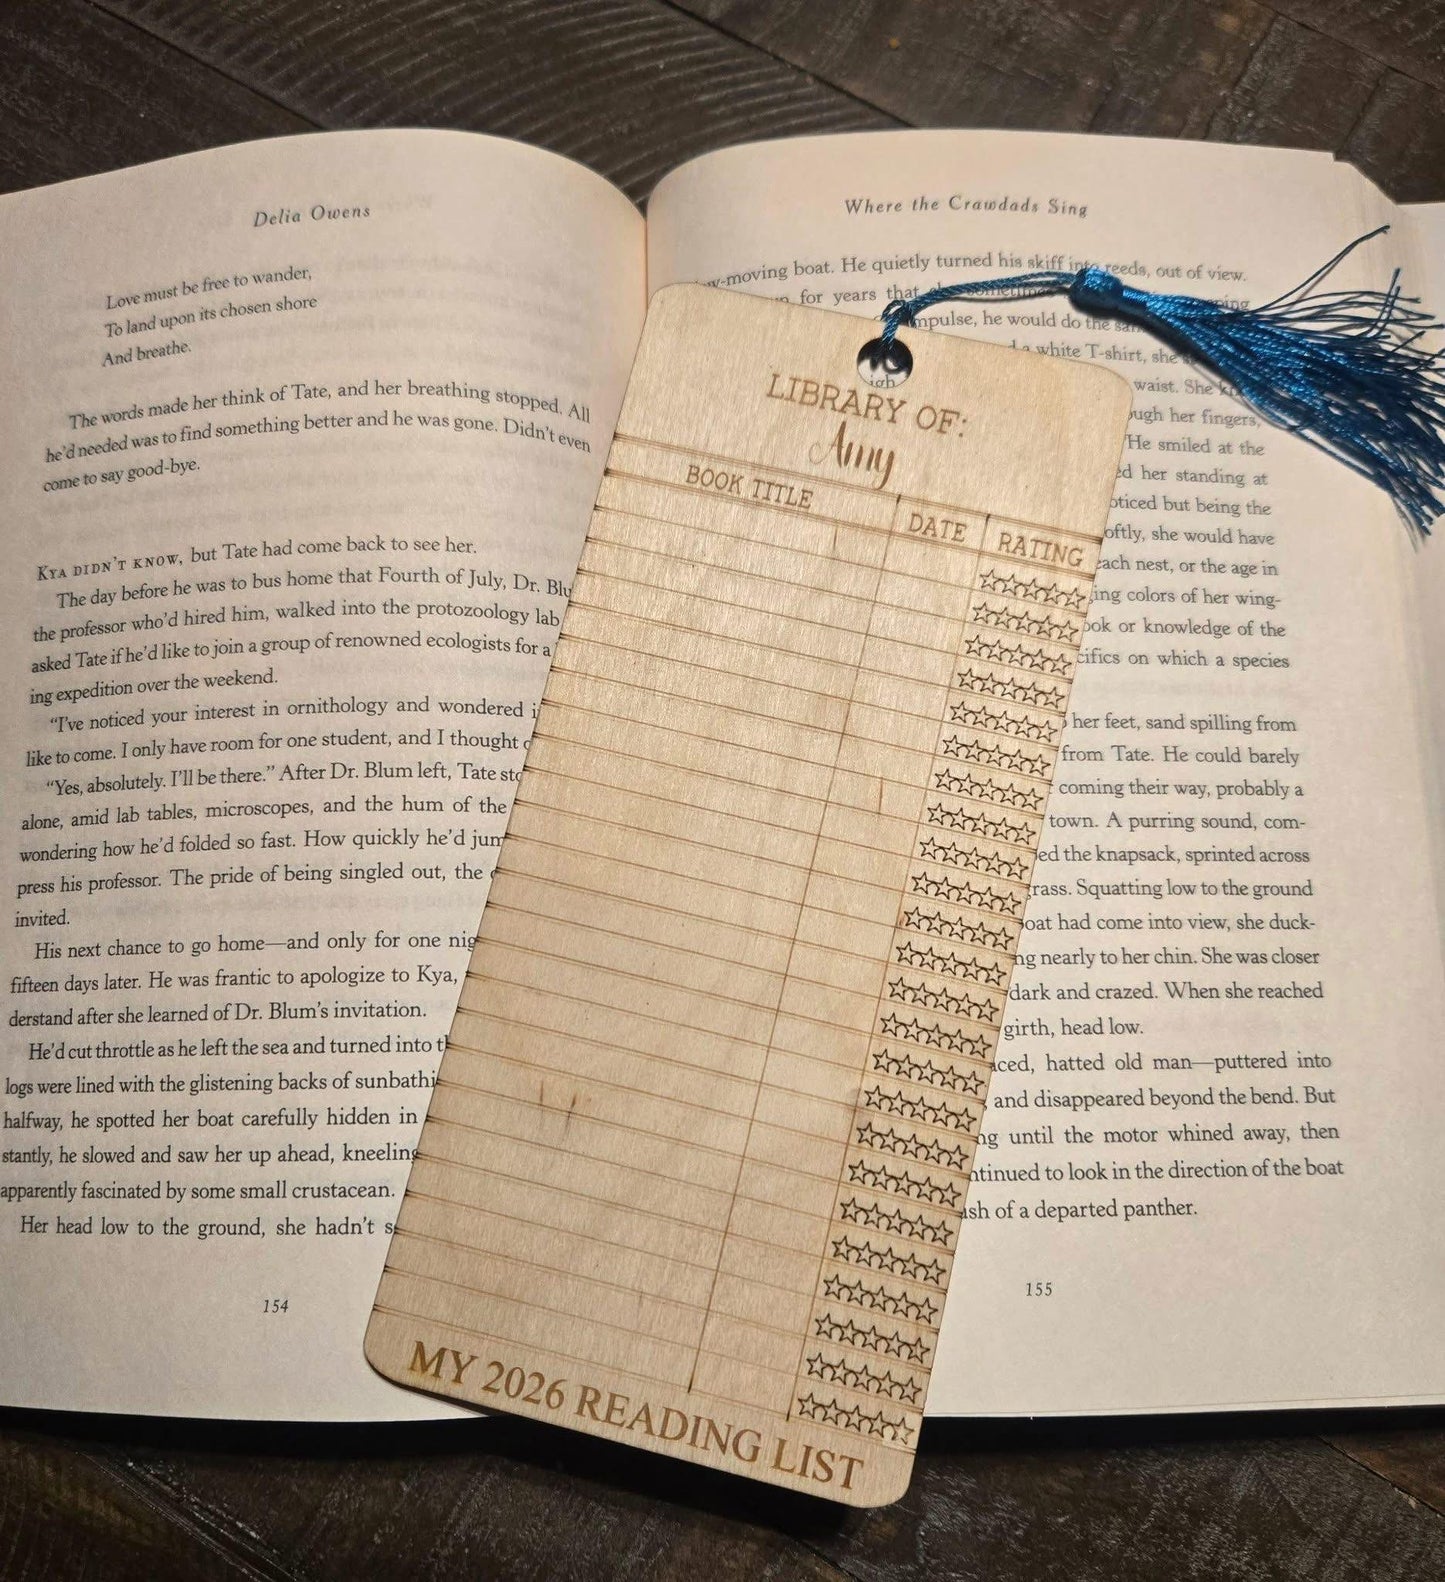 Delia Owens
Love must be free to wander,
To land upon its chosen shore
And breathe.
The words made her think of Tate, and her breathing stopped. All
he'd needed was to find something better and he was gone. Didn't even
come to say good-bye.
Kya didn't know, but Tate had come back to see her.
The day before he was to bus home that Fourth of July, Dr. Blu
the professor who'd hired him, walked into the protozoology lab
asked Tate if he'd like to join a group of renowned ecologists for a
ing expedition over the weekend.
"I've noticed your interest in ornithology and wondered i
like to come. I only have room for one student, and I thought
"Yes, absolutely. I'll be there." After Dr. Blum left, Tate sto
alone, amid lab tables, microscopes, and the hum of the
wondering how he'd folded so fast. How quickly he'd jum
press his professor. The pride of being singled out, the
invited.
His next chance to go home—and only for one nig
fifteen days later. He was frantic to apologize to Kya,
derstand after she learned of Dr. Blum's invitation.
He'd cut throttle as he left the sea and turned into t
logs were lined with the glistening backs of sunbathi
halfway, he spotted her boat carefully hidden in
stantly, he slowed and saw her up ahead, kneeling
apparently fascinated by some small crustacean.
Her head low to the ground, she hadn't s
154
Where the Crawdads Sing
w-moving boat. He quietly turned his skiff into reeds, out of view.
for years that
mpulse, he would do the
a white T-shirt, she
waist. She
ough her fingers,
He smiled at the
ed her standing at
oticed but being the
oftly, she would have
each nest, or the age in
ing colors of her wing-
ook or knowledge of the
cifics on which a species
her feet, sand spilling from
from Tate. He could barely
coming their way, probably a
town. A purring sound, com-
ed the knapsack, sprinted across
grass. Squatting low to the ground
oat had come into view, she duck-
ng nearly to her chin. She was closer
dark and crazed. When she reached
girth, head low.
aced, hatted old man—puttered into
and disappeared beyond the bend. But
ng until the motor whined away, then
ntinued to look in the direction of the boat
ush of a departed panther.
155
igh
LIBRARY OF:
Amy
BOOK TITLE DATE RATING
MY 2026 READING LIST